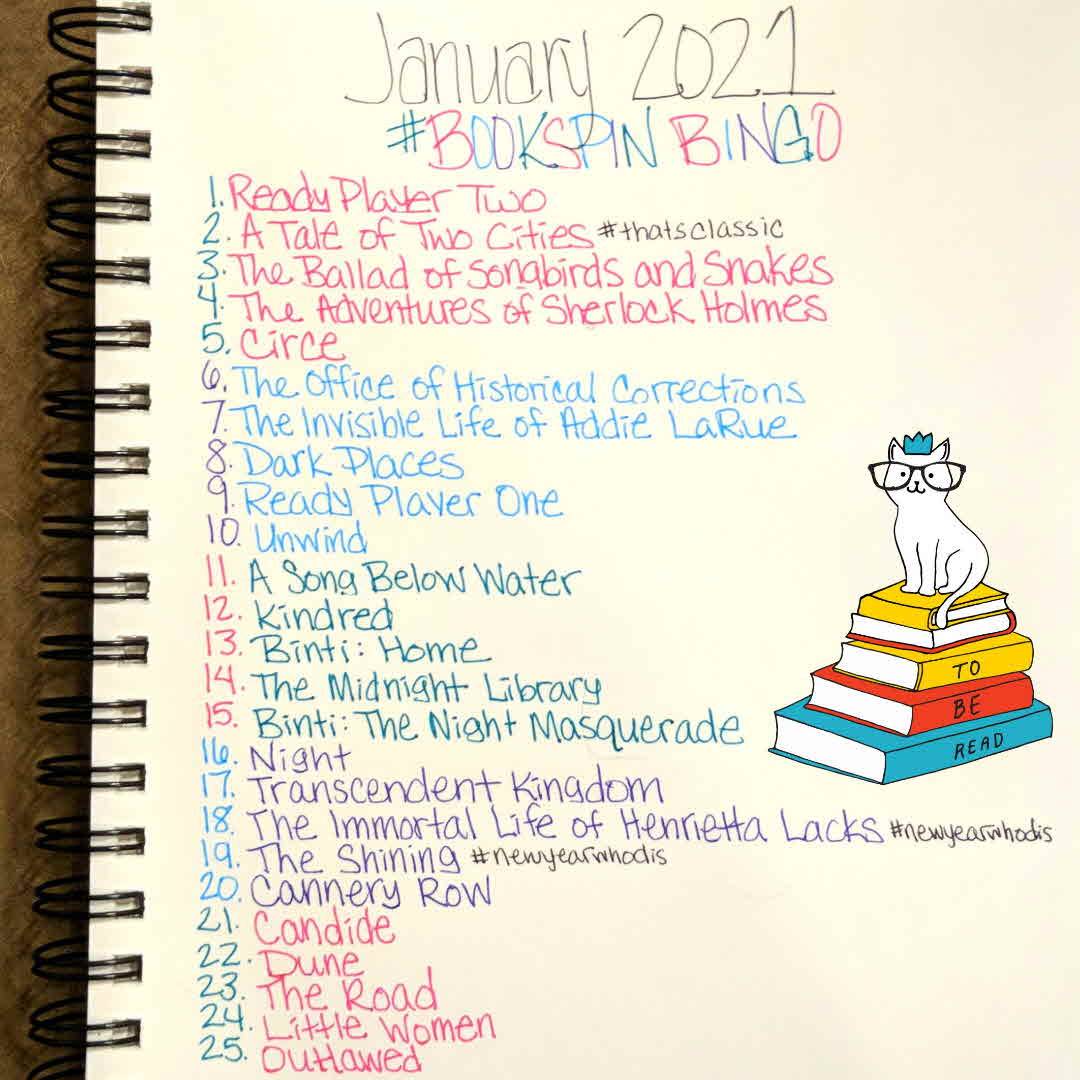 January 2021
#BOOKSPIN BINGO
1. Ready Player Two
2. A Tale of Two Cities #thatsclassic
3. The Ballad of Songbirds and Snakes
4. The Adventures of Sherlock Holmes
5. Circe
6. The Office of Historical Corrections
7. The Invisible Life of Addie LaRue
8. Dark Places
9. Ready Player One
10. Unwind
11. A Song Below Water
12. Kindred
13. Binti: Home
14. The Midnight Library
15. Binti: The Night Masquerade
16. Night
17. Transcendent Kingdom
18. The Immortal Life of Henrietta Lacks #newyearwhodis
19. The Shining #newyearwhodis
20. Cannery Row
21. Candide
22. Dune
23. The Road
24. Little Women
25. Outlawed
TO
BE
READ